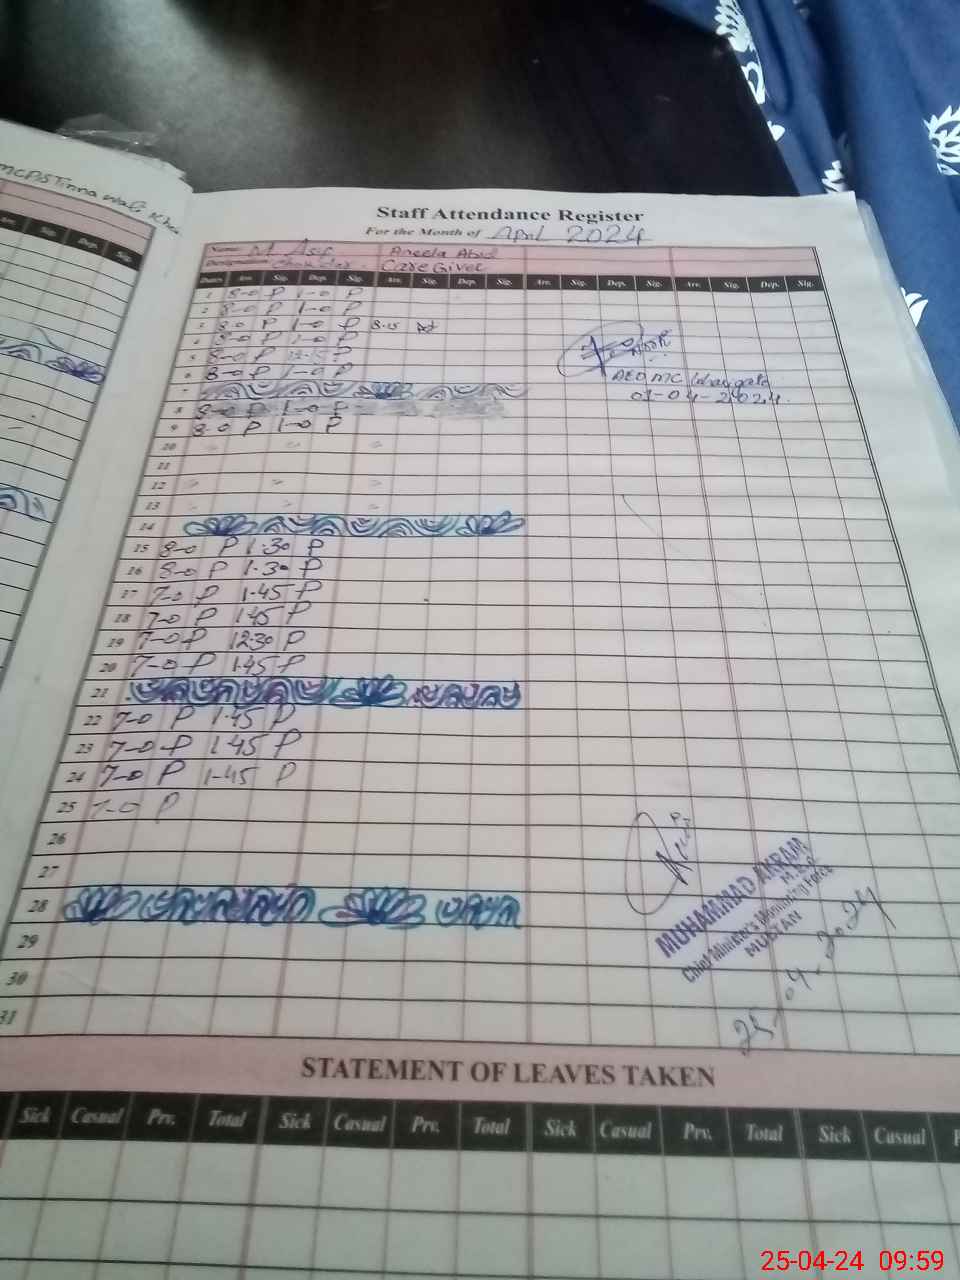 Staff Attendance Register
For the Month of April 2024
Name: M Asif Aneela Abid
Designation Care Giver
Dates Arr. Sig. Dep. Sig. Arr. Sig. Dep. Sig. Arr. Sig. Dep. Sig. Arr. Sig. Dep. Sig.
1 8-0 P 1-0 P
2 8-0 P 1-0 P
3 8-0 P 1-0 P 8-15
4 8-0 P 1-0 P
5 8-0 P P
6 8-0 P 1-0 P
AEO MC
01-04-2024.
7
8 8-0 P 1-0 P
9 8-0 P 1-0 P
10
11
12
13
14
15 8-0 P 1.30 P
16 8-0 P 1.30 P
17 7-0 P 1-45 P
18 7-0 P 1.45 P
19 7-0 P 12.30 P
20 7-0 P 1.45 P
21
22 7-0 P 1.45 P
23 7-0 P 1.45 P
24 7-0 P 1-45 P
25 7-0 P
26
27
28
29
30
31
MUHAMMAD AKRAM
M.E.A
Chief Minister's Monitoring Force
MULTAN
25.04.2024
STATEMENT OF LEAVES TAKEN
Sick Casual Prv. Total Sick Casual Prv. Total Sick Casual Prv. Total Sick Casual P
25-04-24 09:59